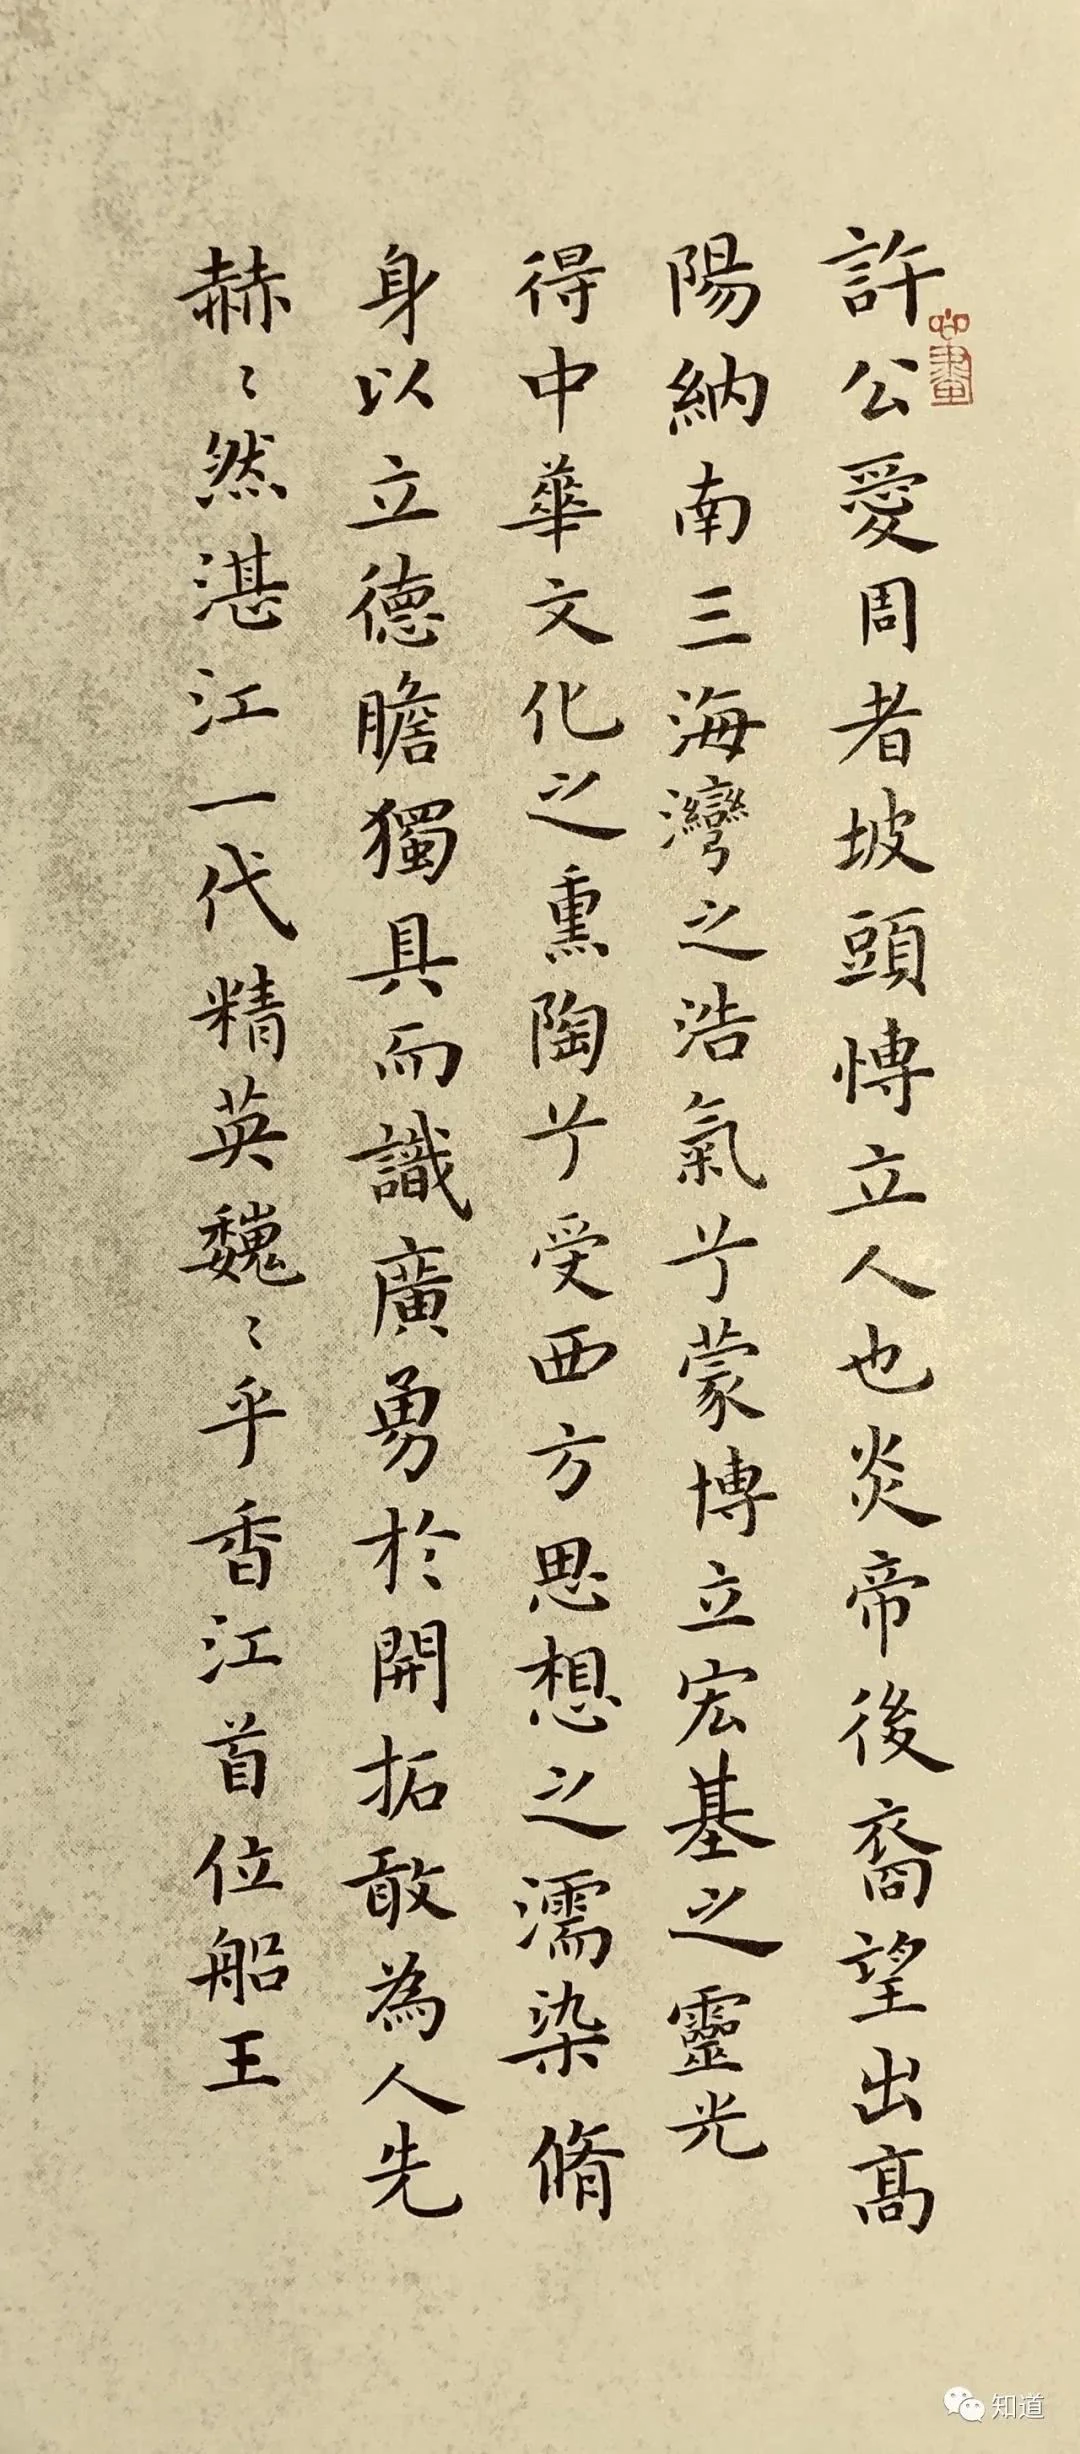 許公愛周者坡頭博立人也炎帝後裔望出高
陽納南三海灣之浩氣兮蒙博立宏基之靈光
得中華文化之熏陶兮受西方思想之濡染脩
身以立德瞻獨具而識廣勇於開拓敢為人先
赫〻然湛江一代精英巍〻乎香江首位船王
心畫
知道